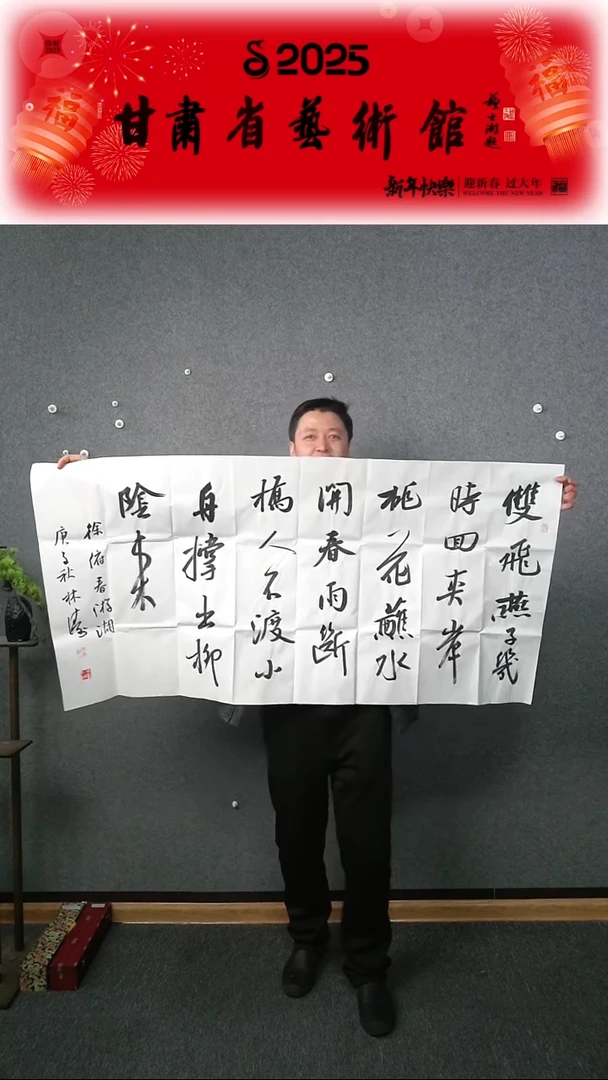 2025
甘肅省藝術館
新年快樂
迎新春 过大年
WELCOME THE NEW YEAR
福
福
雙飛燕子幾
時回夾岸
桃花蘸水
開春雨斷
橋人不渡小
舟撐出柳
陰來
徐俯春游湖
庚子秋林